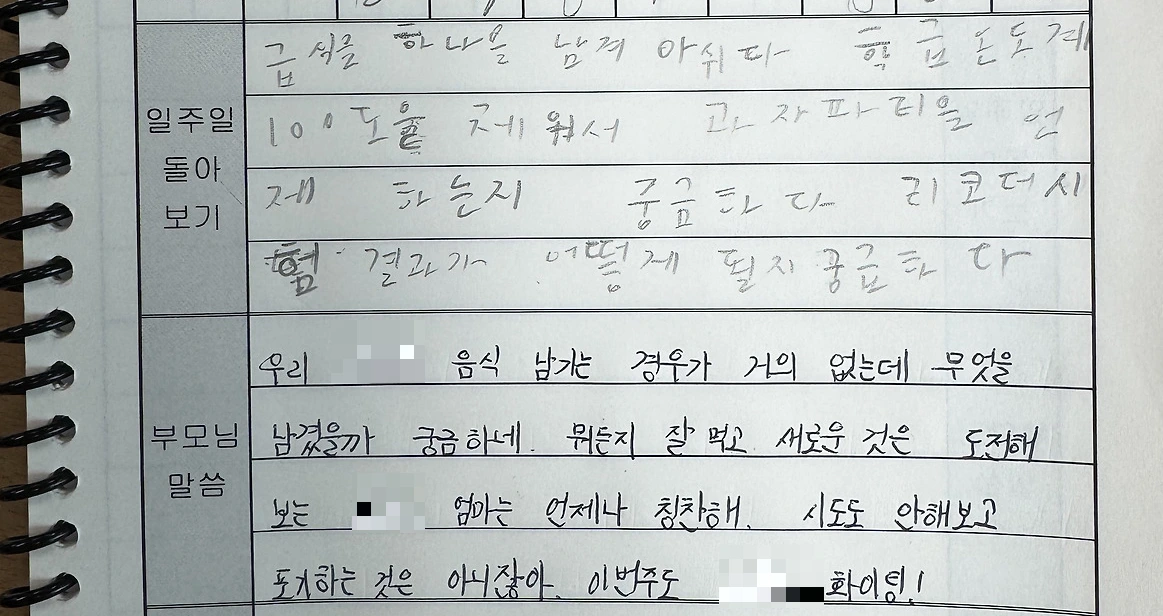 일주일
돌아
보기
급식을 하나을 남겨 아쉬다 학급온도계
100도을 제워서 과자파티을 언
제 하는지 궁금하다 리코더시
험 결과가 어떻게 될지 궁금하다
부모님
말씀
우리 음식 남기는 경우가 거의 없는데 무엇을
남겼을까 궁금하네. 뭐든지 잘 먹고 새로운 것은 도전해
보는 엄마는 언제나 칭찬해. 시도도 안해보고
포기하는 것은 아니잖아. 이번주도 화이팅!